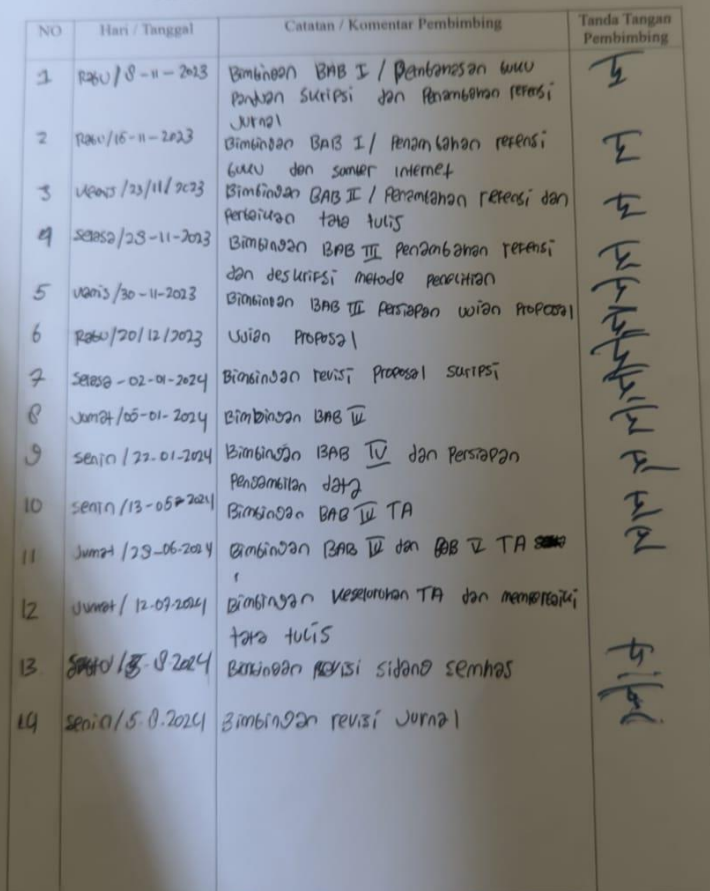 NO Hari / Tanggal Catatan / Komentar Pembimbing Tanda Tangan Pembimbing
1 Rabu/8-11-2023 Bimbingan BAB I / Pembahasan buku
panduan skripsi dan Penambahan refensi
Jurnal
2 Rabu/15-11-2023 Bimbingan BAB I / Penambahan refensi
buku dan sumber internet
3 Kamis/23/11/2023 Bimbingan BAB II / Penambahan refensi dan
perbaikan tata tulis
4 Selasa/28-11-2023 Bimbingan BAB III Penambahan refensi
dan deskripsi metode penelitian
5 Kamis/30-11-2023 Bimbingan BAB III Persiapan ujian Proposal
6 Rabu/20/12/2023 Ujian Proposal
7 Selasa-02-01-2024 Bimbingan revisi Proposal skripsi
8 Jumat/05-01-2024 Bimbingan BAB IV
9 Senin/22-01-2024 Bimbingan BAB IV dan Persiapan
Pengambilan data
10 Senin/13-05-2024 Bimbingan BAB IV TA
11 Jumat/28-06-2024 Bimbingan BAB IV dan BAB V TA
12 Jumat/12-07-2024 Bimbingan Keseluruhan TA dan memperbaiki
tata tulis
13 8-2024 Bimbingan Revisi sidang semhas
14 Senin/5.8.2024 Bimbingan revisi Jurnal